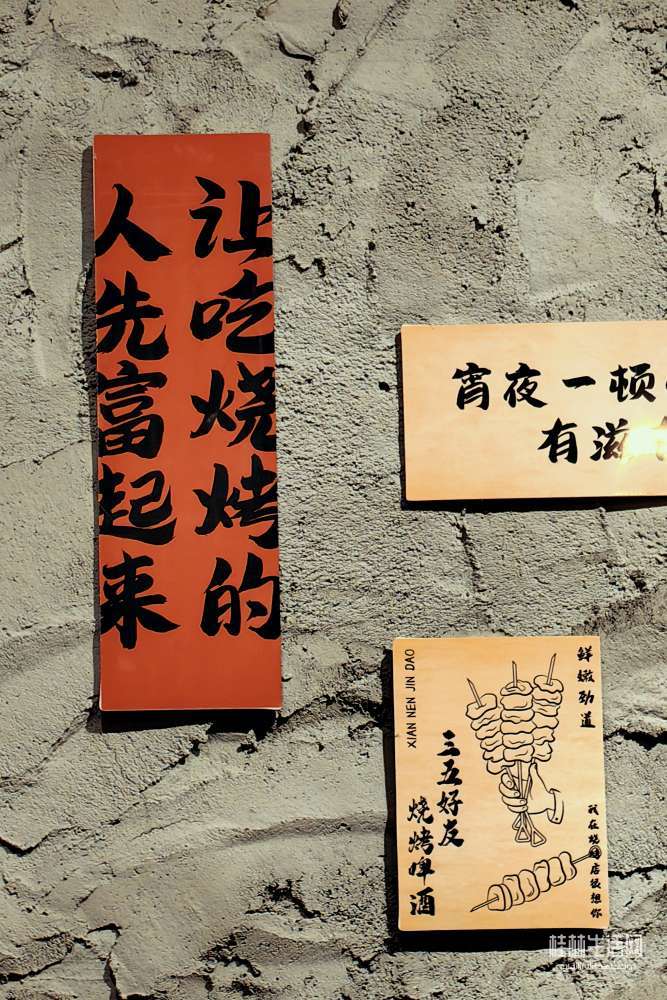 让吃烧烤的
人先富起来
宵夜一顿
有滋
鲜嫩劲道
XIAN NEN JIN DAO
三五好友
烧烤啤酒
我在烧烤店很想你
桂林生活网